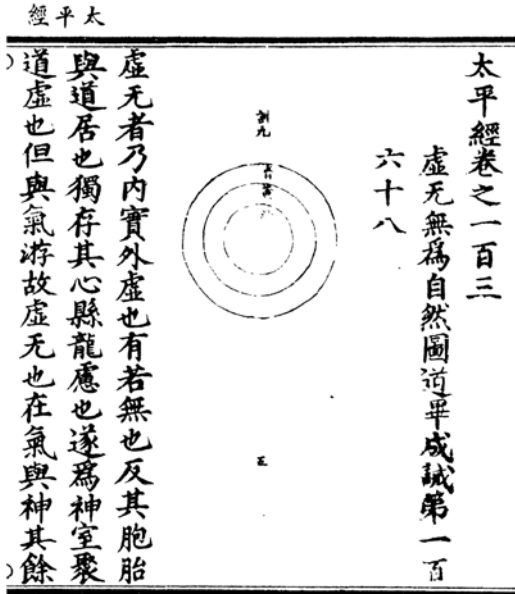 太平經
太平經卷之一百三
虛无無爲自然圖道畢成誡第一百
六十八
虛无者乃内實外虛也有若無也反其胞胎
與道居也獨存其心縣龍慮也遂爲神室聚
道虛也但與氣游故虛无也在氣與神其餘